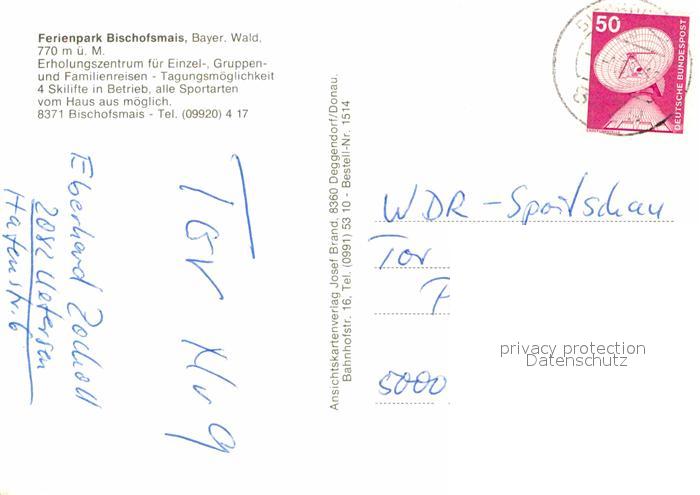 Ferienpark Bischofsmais, Bayer. Wald,
770 m ü. M.
Erholungszentrum für Einzel-, Gruppen-
und Familienreisen - Tagungsmöglichkeit
4 Skilifte in Betrieb, alle Sportarten
vom Haus aus möglich.
8371 Bischofsmais - Tel. (09920) 4 17
Tor Nr 9
Eberhard
2082 Uetersen
Hafenstr. 6
Ansichtskartenverlag Josef Brand, 8360 Deggendorf/Donau.
Bahnhofstr. 16, Tel. (0991) 53 10 - Bestell-Nr. 1514
50
DEUTSCHE BUNDESPOST
WDR - Sportschau
Tor
P
5000
privacy protection
Datenschutz